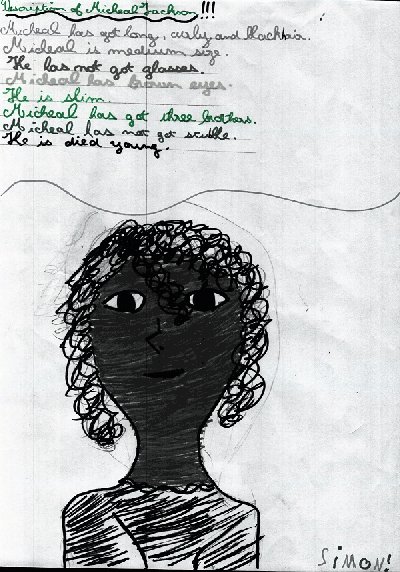 Description of Micheal Jackson!!!
Micheal has got long, curly and blackhair.
Micheal is medium size.
He has not got glasses.
Micheal has brown eyes.
He is slim.
Micheal has got three brothers.
Micheal has not got stubble.
He is died young.
SiMON!